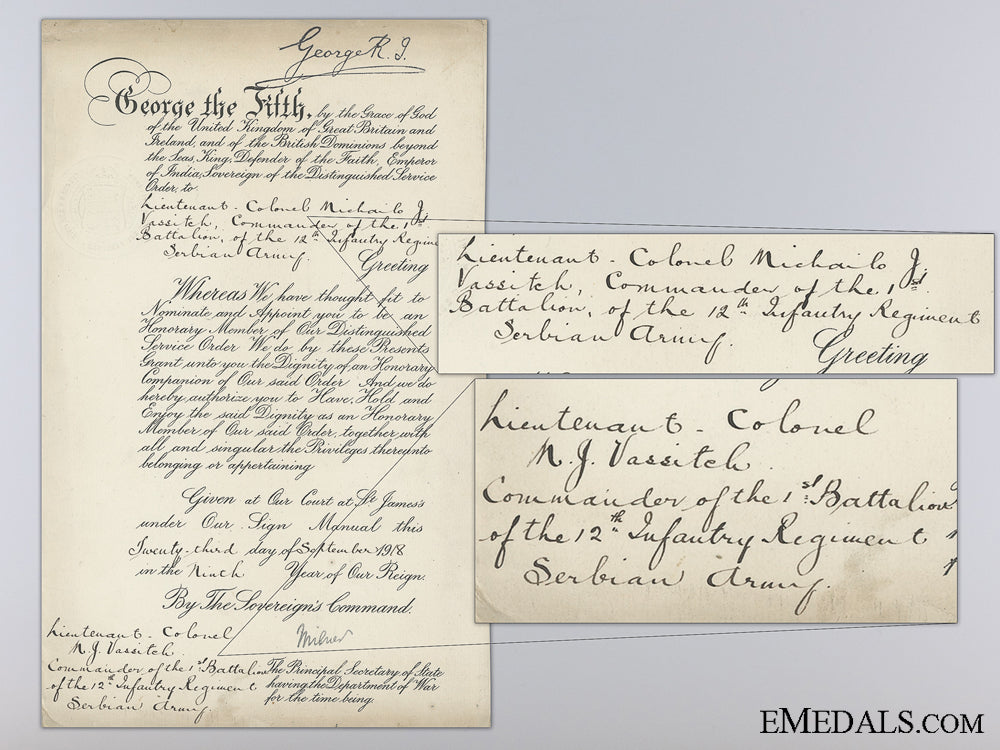 George R. I.
George the Fifth, by the Grace of God
of the United Kingdom of Great Britain and
Ireland, and of the British Dominions beyond
the Seas, King, Defender of the Faith, Emperor
of India, Sovereign of the Distinguished Service
Order, to
Lieutenant - Colonel Michailo J.
Vassitch, Commander of the 1st
Battalion, of the 12th Infantry Regim
Serbian Army.
Greeting
Whereas We have thought fit to
Nominate and Appoint you to be an
Honorary Member of Our Distinguished
Service Order We do by these Presents
Grant unto you the Dignity of an Honorary
Companion of Our said Order And we do
hereby authorize you to Have, Hold and
Enjoy the said Dignity as an Honorary
Member of Our said Order, together with
all and singular the Privileges thereunto
belonging or appertaining
Given at Our Court at St James's
under Our Sign Manual this
Twenty-third day of September 1918
in the Ninth Year of Our Reign.
By The Sovereign's Command.
Milner
The Principal Secretary of State
having the Department of War
for the time being.
Lieutenant - Colonel
M. J. Vassitch
Commander of the 1st Battalion
of the 12th Infantry Regiment
Serbian Army.
Lieutenant - Colonel Michailo J.
Vassitch, Commander of the 1st
Battalion, of the 12th Infantry Regiment
Serbian Army.
Greeting
Lieutenant - Colonel
M. J. Vassitch
Commander of the 1st Battalion
of the 12th Infantry Regiment
Serbian Army.
EMEDALS.COM